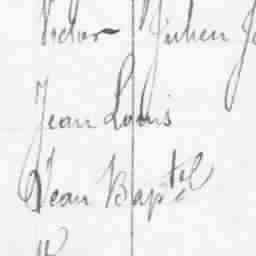 Victor Julien
Jean Louis
Jean Bapte